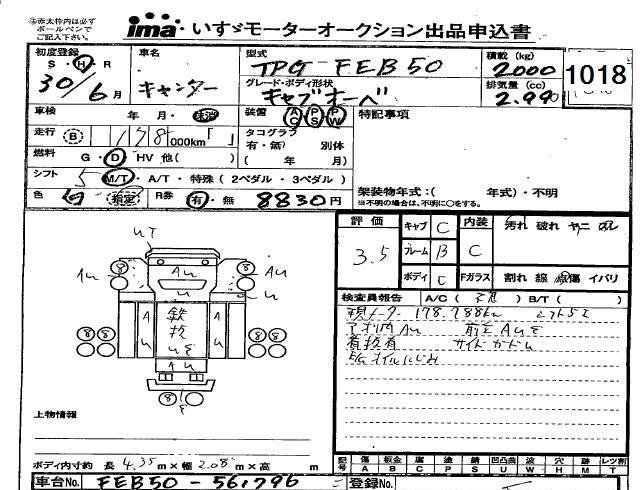 ㊟赤太枠内は必ず
ボールペンで
ご記入下さい。
ima いすゞモーターオークション出品申込書
初度登録 S・H・R 30/6月
車名 キャンター
型式 TPG-FEB50
積載 (kg) 2000
1018
グレード・ボディ形状 キャブオーバ
排気量 (cc) 2.990
車検 年・月・
装備 AC PS PW
特記事項
走行 B 178 000km「 」
タコグラフ 有・無( )別体
( 年 月)
燃料 G・D・HV 他( )
シフト 5 M/T・A/T・特殊(2ペダル・3ペダル)
架装物年式:( 年式)・不明
※不明の場合は、不明に○をする。
色 白 指定 R券 有・無 8830円
評価 3.5
キャブ C
内装 C
汚れ 破れ ヤニ
フレーム B
ボディ C
Fガラス 割れ 線 点傷 イバリ
UT
AU AU AU
U U
A A
U U
鉄板
UE
AU
8 8 8 8 8
検査員報告 A/C( ) B/T( )
現メーター 178.288km
AU AUE
サイドガード
上物情報
ボディ内寸約 長 4.35m×幅 2.08m×高 m
記号 傷A 板金B 腐C 塗P 錆S 凹凸曲U 波W 穴H 跡M レツ割T
車台No. FEB50-561796
登録No.